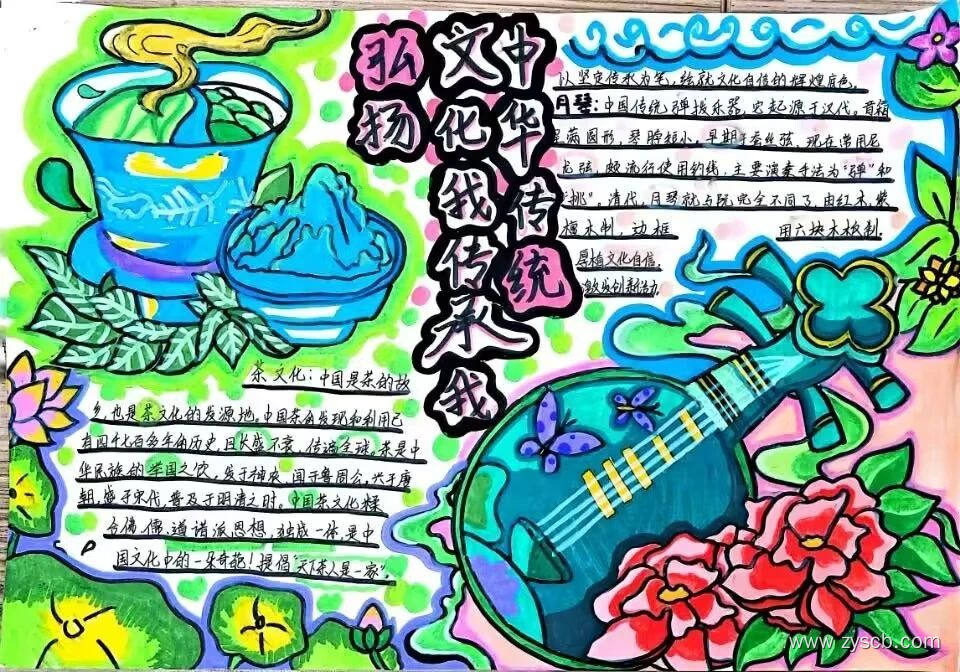 中华传统
文化我传承我
弘扬
以坚定传承为笔，绘就文化自信的辉煌底色。
月琴：中国传统弹拨乐器，它起源于汉代，音箱
呈满圆形，琴脖短小，早期 丝弦，现在常用尼
龙弦，颇流行使用钓线，主要演奏手法为“弹”和
“挑”，清代，月琴就与阮完全不同了，由红木，紫
檀木制，边框 用六块木板制．
厚植文化自信，
激发创新活力．
茶文化：中国是茶的故
乡，也是茶文化的发源地，中国茶的发现和利用已
有四千七百多年的历史，且长盛不衰，传遍全球，茶是中
华民族的举国之饮，发于神农，闻于鲁周公，兴于唐
朝，盛于宋代，普及于明清之时。中国茶文化糅
合佛，儒，道诸派思想，独成一体，是中
国文化中的一朵奇葩！提倡“天下茶人是一家”．
www.zyscb.com